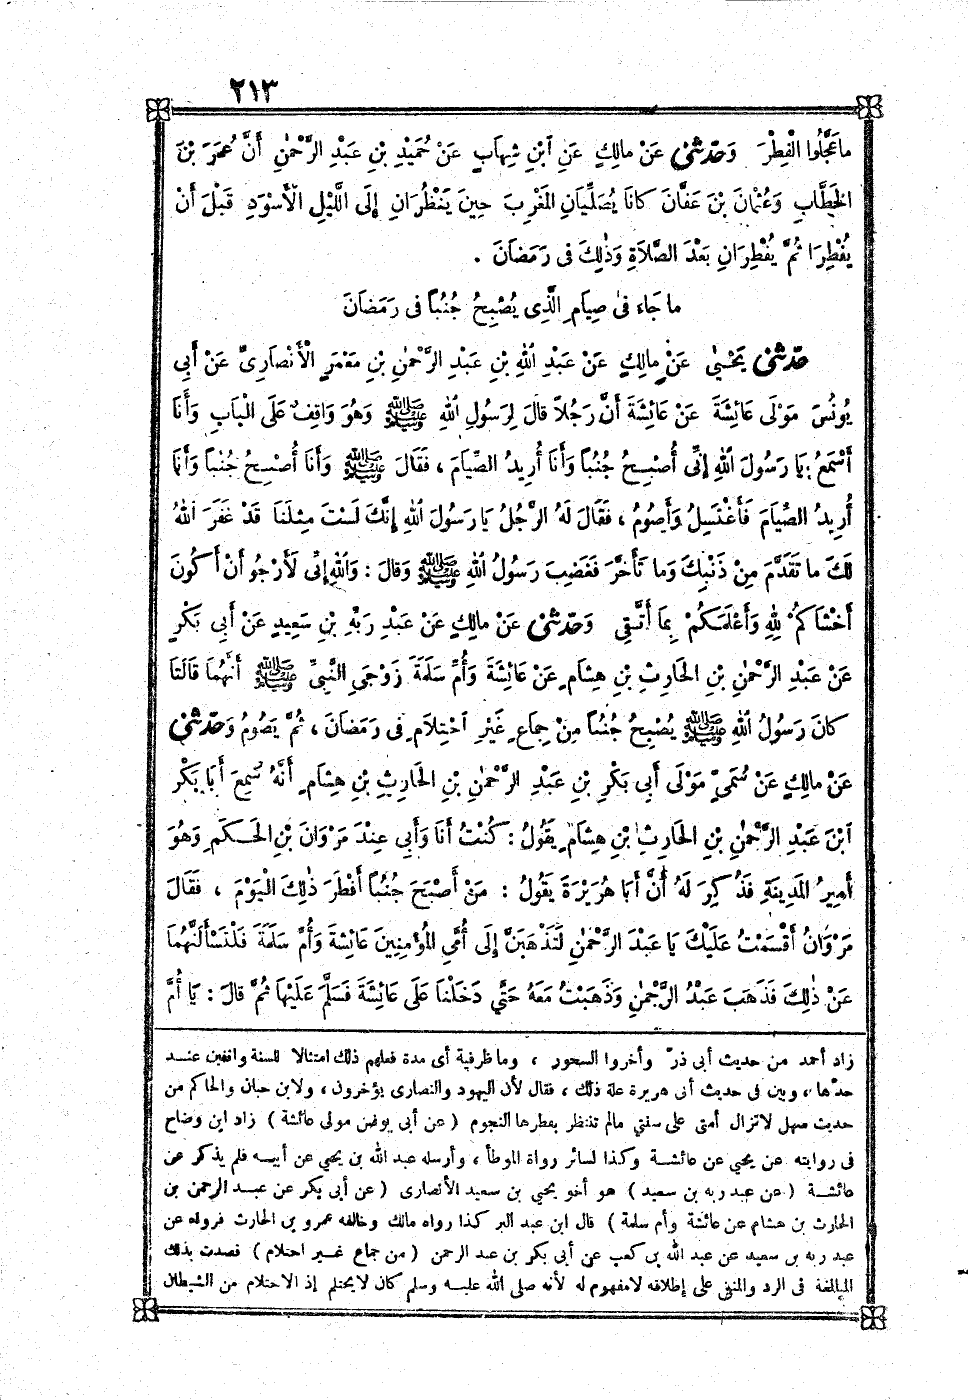 ٢١٣
ما عَجَّلُوا الْفِطْرَ وَحَدَّثَنِي عَنْ مالِكٍ عَنِ ابْنِ شِهَابٍ عَنْ حُمَيْدِ بْنِ عَبْدِ الرَّحْمٰنِ أَنَّ عُمَرَ بْنَ
الخَطَّابِ وَعُثْمَانَ بْنَ عَفَّانَ كَانَا يُصَلِّيَانِ المَغْرِبَ حِينَ يَنْظُرَانِ إِلَى اللَّيْلِ الْأَسْوَدِ قَبْلَ أَنْ
يُفْطِرَا ثُمَّ يُفْطِرَانِ بَعْدَ الصَّلَاةِ وَذٰلِكَ فى رَمَضَانَ .
ما جَاءَ فى صِيَامِ الَّذِى يُصْبِحُ جُنُبًا فى رَمَضَانَ
حَدَّثَنِي يَحْيٰى عَنْ مالِكٍ عَنْ عَبْدِ اللهِ بْنِ عَبْدِ الرَّحْمٰنِ بْنِ مَعْمَرٍ الْأَنْصَارِىِّ عَنْ أَبِى
يُونُسَ مَوْلَى عَائِشَةَ عَنْ عَائِشَةَ أَنَّ رَجُلًا قالَ لِرَسُولِ اللهِ ﷺ وَهُوَ وَاقِفٌ عَلَى الْبَابِ وَأَنَا
أَسْمَعُ : يَا رَسُولَ اللهِ إِنِّى أُصْبِحُ جُنُبًا وَأَنَا أُرِيدُ الصِّيَامَ ، فَقَالَ ﷺ وَأَنَا أُصْبِحُ جُنُبًا وَأَنَا
أُرِيدُ الصِّيَامَ فَأَغْتَسِلُ وَأَصُومُ ، فَقَالَ لَهُ الرَّجُلُ يَا رَسُولَ اللهِ إِنَّكَ لَسْتَ مِثْلَنَا قَدْ غَفَرَ اللهُ
لَكَ ما تَقَدَّمَ مِنْ ذَنْبِكَ وَما تَأَخَّرَ فَغَضِبَ رَسُولُ اللهِ ﷺ وَقالَ : وَاللهِ إِنِّى لَأَرْجُو أَنْ أَكُونَ
أَخْشَاكُمْ لِلهِ وَأَعْلَمَكُمْ بِمَا أَتَّقِى وَحَدَّثَنِي عَنْ مالِكٍ عَنْ عَبْدِ رَبِّهِ بْنِ سَعِيدٍ عَنْ أَبِى بَكْرِ
عَنْ عَبْدِ الرَّحْمٰنِ بْنِ الحَارِثِ بْنِ هِشَامٍ عَنْ عَائِشَةَ وَأُمِّ سَلَمَةَ زَوْجَىِ النَّبِىِّ ﷺ أَنَّهُمَا قَالَتَا
كانَ رَسُولُ اللهِ ﷺ يُصْبِحُ جُنُبًا مِنْ جِمَاعٍ غَيْرِ احْتِلَامٍ فى رَمَضَانَ ، ثُمَّ يَصُومُ وَحَدَّثَنِي
عَنْ مالِكٍ عَنْ سُمَىٍّ مَوْلَى أَبِى بَكْرِ بْنِ عَبْدِ الرَّحْمٰنِ بْنِ الحَارِثِ بْنِ هِشَامٍ أَنَّهُ سَمِعَ أَبَا بَكْرِ
ابْنَ عَبْدِ الرَّحْمٰنِ بْنِ الحَارِثِ بْنِ هِشَامٍ يَقُولُ : كُنْتُ أَنَا وَأَبِى عِنْدَ مَرْوَانَ بْنِ الحَكَمِ وَهُوَ
أَمِيرُ المَدِينَةِ فَذُكِرَ لَهُ أَنَّ أَبَا هُرَيْرَةَ يَقُولُ : مَنْ أَصْبَحَ جُنُبًا أَفْطَرَ ذٰلِكَ الْيَوْمَ ، فَقَالَ
مَرْوَانُ أَقْسَمْتُ عَلَيْكَ يَا عَبْدَ الرَّحْمٰنِ لَتَذْهَبَنَّ إِلَى أُمَّىِ المُؤْمِنِينَ عَائِشَةَ وَأُمِّ سَلَمَةَ فَلْتَسْأَلَنَّهُمَا
عَنْ ذٰلِكَ فَذَهَبَ عَبْدُ الرَّحْمٰنِ وَذَهَبْتُ مَعَهُ حَتَّى دَخَلْنَا عَلَى عَائِشَةَ فَسَلَّمَ عَلَيْهَا ثُمَّ قالَ : يَا أُمَّ
زاد أحمد من حديث أبى ذرّ وأخروا السحور ، وما ظرفية أى مدة فعلهم ذلك امتثالا للسنة واقفين عند
حدّها ، وبين فى حديث أبى هريرة علة ذلك ، فقال لأن اليهود والنصارى يؤخرون ، ولابن حبان والحاكم من
حديث سهل لاتزال أمتى على سنتى مالم تنتظر بفطرها النجوم ( عن أبى يونس مولى عائشة ) زاد ابن وضاح
فى روايته عن يحيى عن عائشة وكذا لسائر رواة الموطأ ، وأرسله عبد الله بن يحيى عن أبيه فلم يذكر عن
عائشة ( عن عبد ربه بن سعيد ) هو أخو يحيى بن سعيد الأنصارى ( عن أبى بكر عن عبد الرحمن بن
الحارث بن هشام عن عائشة وأم سلمة ) قال ابن عبد البر كذا رواه مالك وخالفه عمرو بن الحارث فرواه عن
عبد ربه بن سعيد عن عبد الله بن كعب عن أبى بكر بن عبد الرحمن ( من جماع غير احتلام ) قصدت بذلك
المبالغة فى الرد والمنفى على إطلاقه لامفهوم له لأنه صلى الله عليه وسلم كان لايحتلم إذ الاحتلام من الشيطان